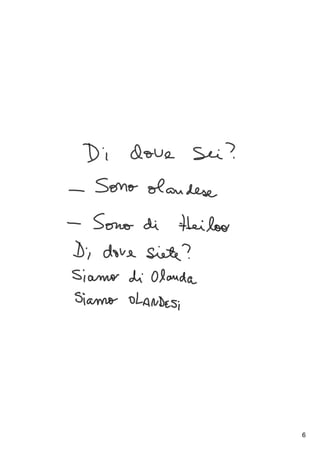 Di dove sei?
– Sono olandese
– Sono di Heiloo
Di dove siete?
Siamo di Olanda
Siamo OLANDESi
6